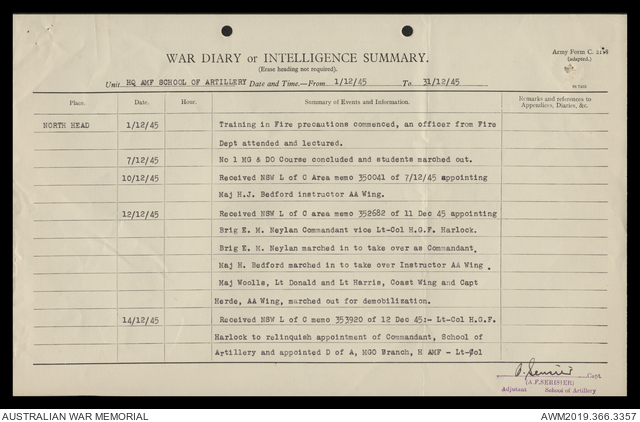 WAR DIARY or INTELLIGENCE SUMMARY.
Army Form C. 2118
(adapted.)
(Erase heading not required).
Unit HQ AMF SCHOOL OF ARTILLERY Date and Time.—From 1/12/45 To 31/12/45
Place. Date. Hour. Summary of Events and Information. Remarks and references to
Appendices, Diaries, &c.
NORTH HEAD 1/12/45 Training in Fire precautions commenced, an officer from Fire
Dept attended and lectured.
7/12/45 No 1 MG & DO Course concluded and students marched out.
10/12/45 Received NSW L of C Area memo 350041 of 7/12/45 appointing
Maj H.J. Bedford instructor AA Wing.
12/12/45 Received NSW L of C area memo 352682 of 11 Dec 45 appointing
Brig E. M. Neylan Commandant vice Lt-Col H.G.F. Harlock.
Brig E. M. Neylan marched in to take over as Commandant.
Maj H. Bedford marched in to take over Instructor AA Wing.
Maj Woolls, Lt Donald and Lt Harris, Coast Wing and Capt
Herde, AA Wing, marched out for demobilization.
14/12/45 Received NSW L of C memo 353920 of 12 Dec 45:- Lt-Col H.G.F.
Harlock to relinquish appointment of Commandant, School of
Artillery and appointed D of A, MGO Branch, H AMF - Lt-Col
Capt
(A.F.SERISIER)
Adjutant School of Artillery
AUSTRALIAN WAR MEMORIAL AWM2019.366.3357